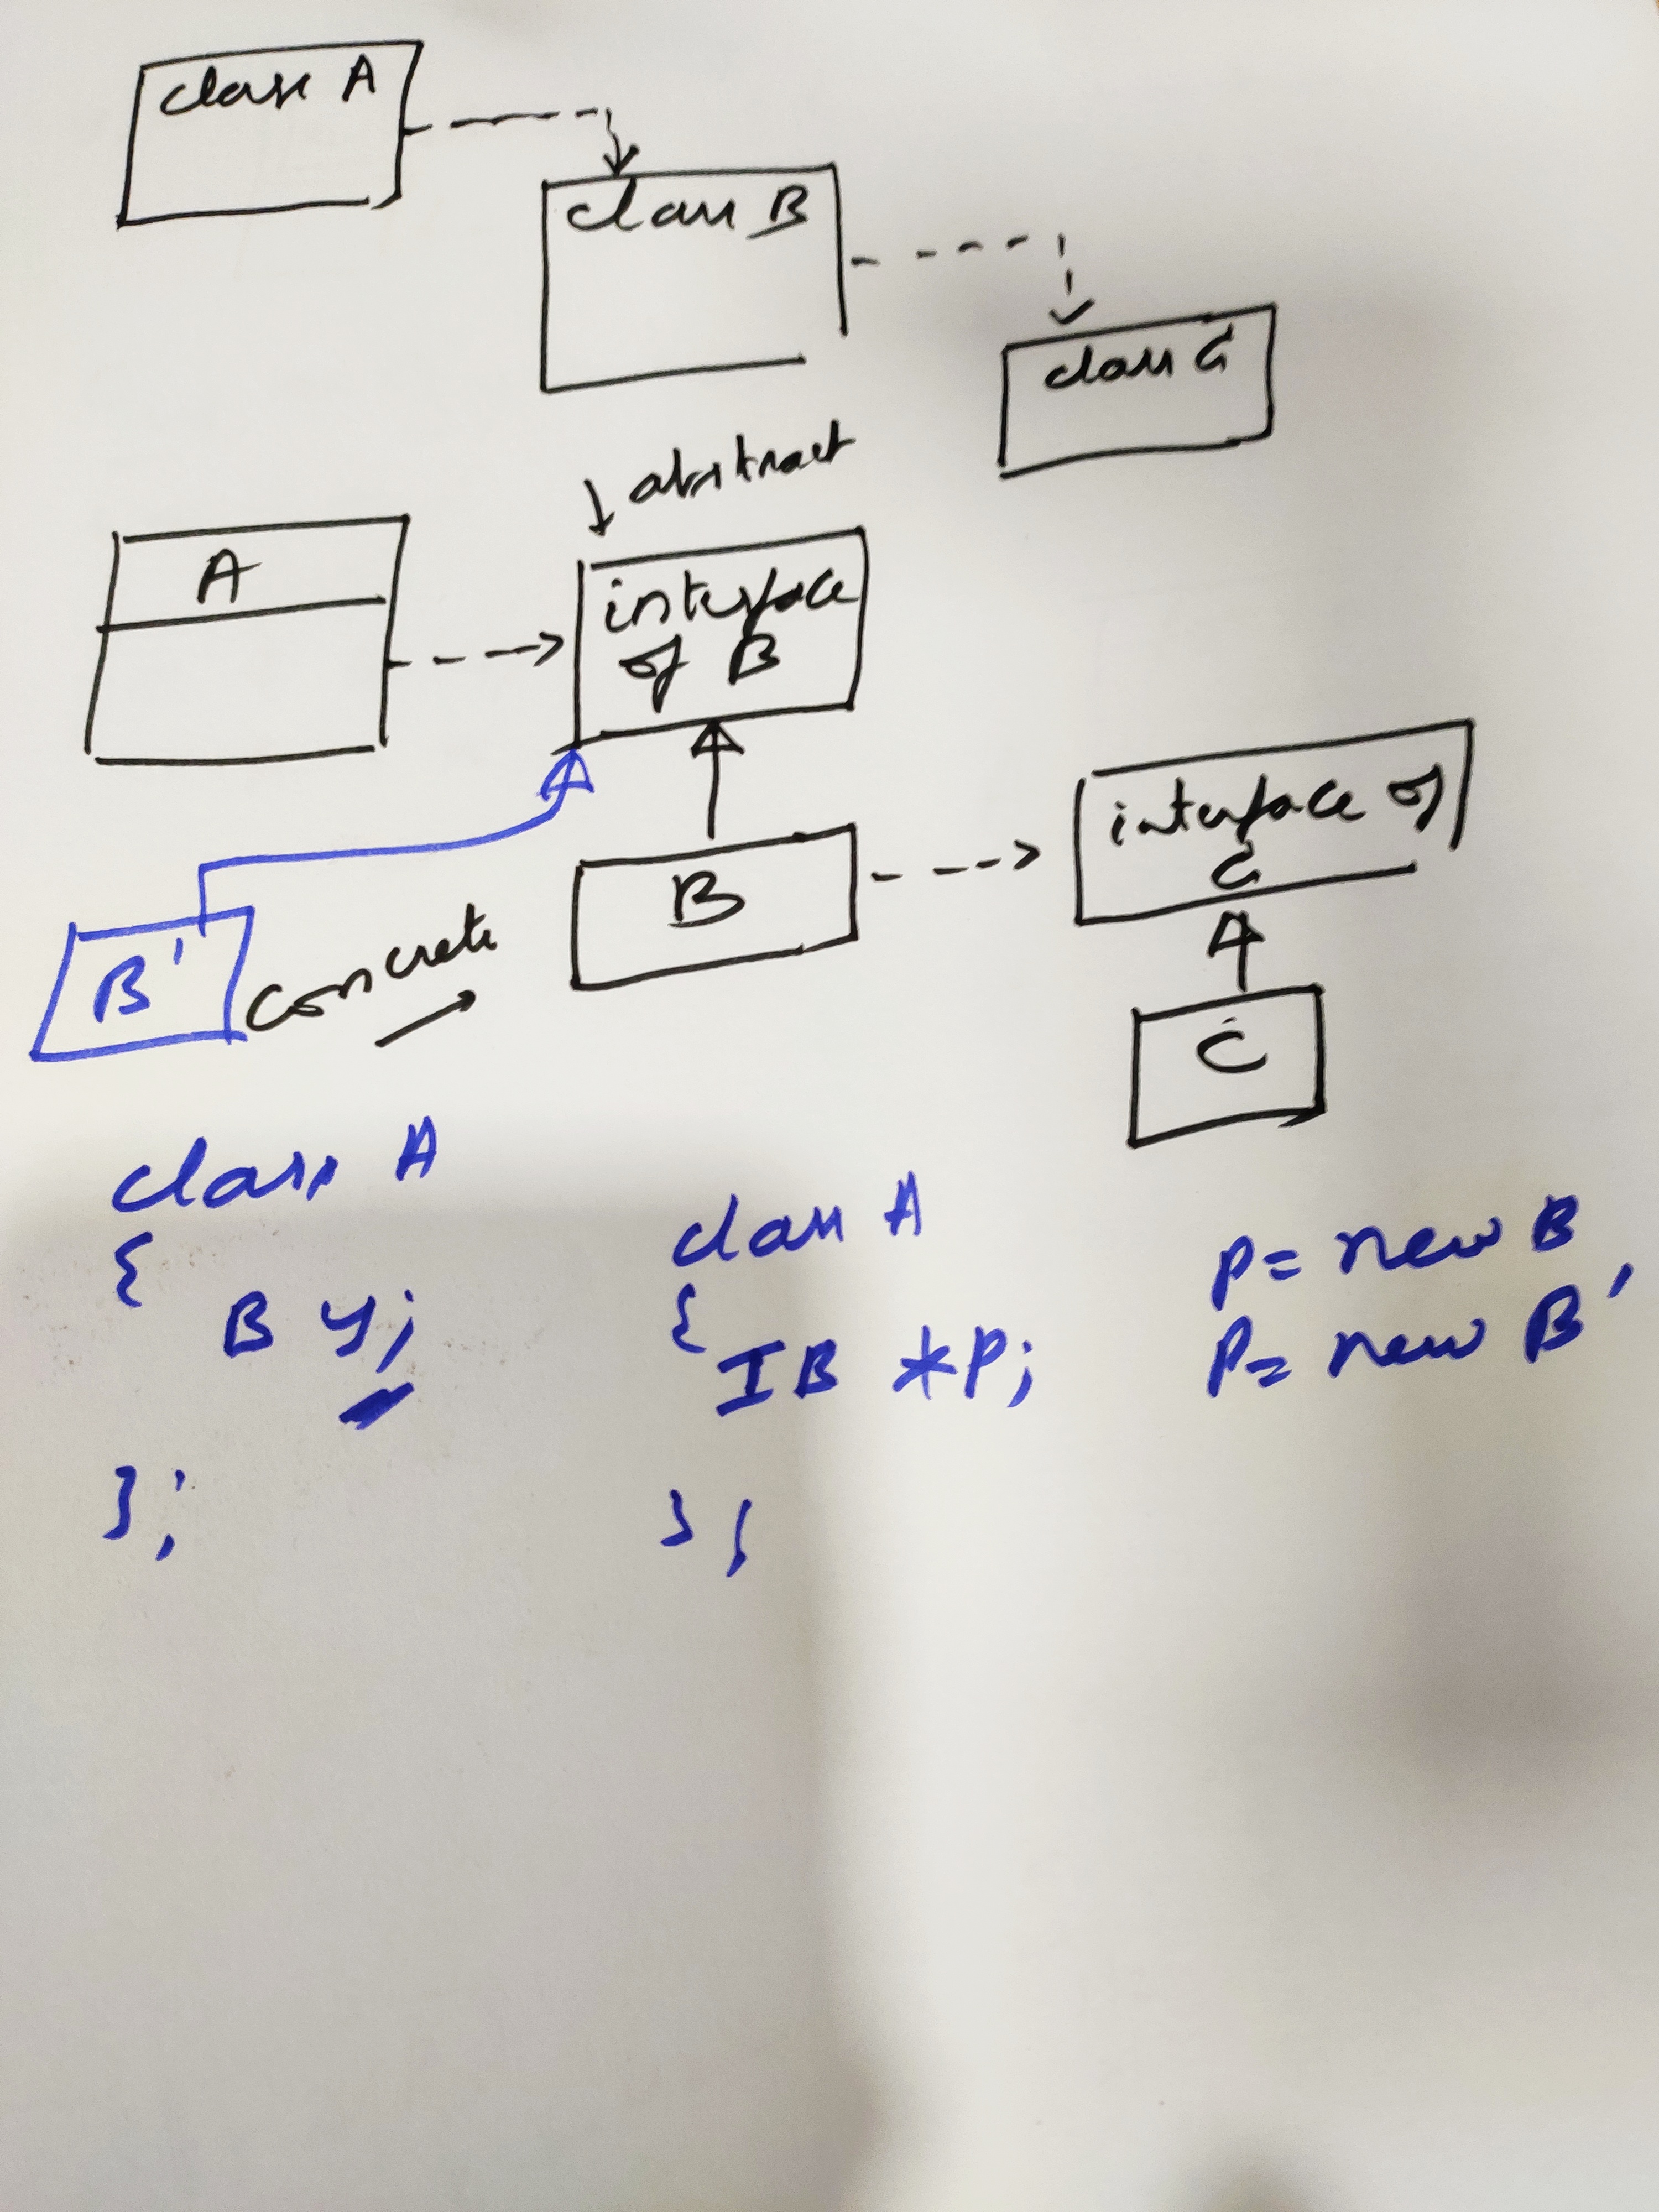 class A
class B
class C
abstract
A
interface
of B
interface of
C
B
B'
concrete
C
class A
{
B y;
};
class A
{
IB *p;
};
p= new B
p= new B'